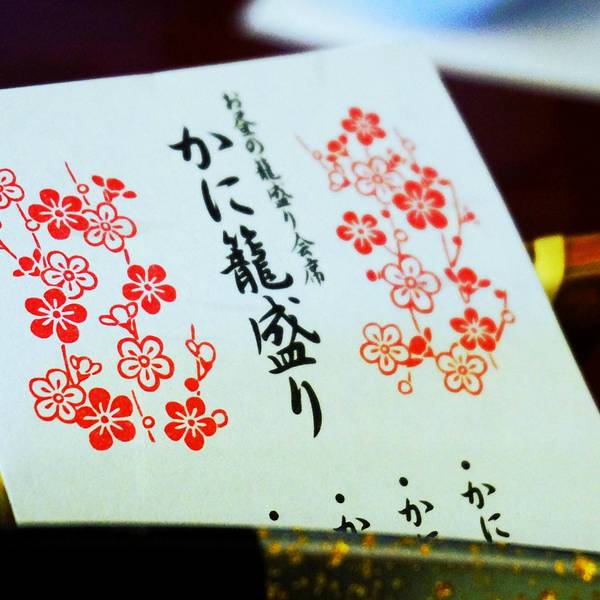 お昼の籠盛り会席
かに籠盛り
・かに
・か
・か
・